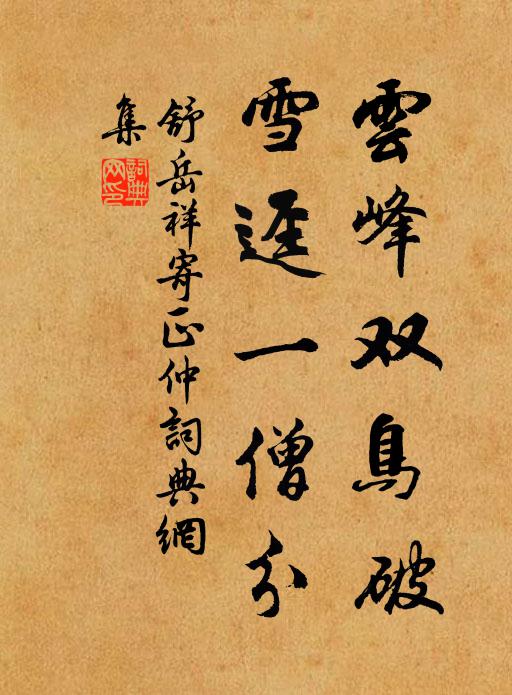 雲峰双鳥破
雪逕一僧分
舒岳祥寄正仲詞典網
集
詞典网印